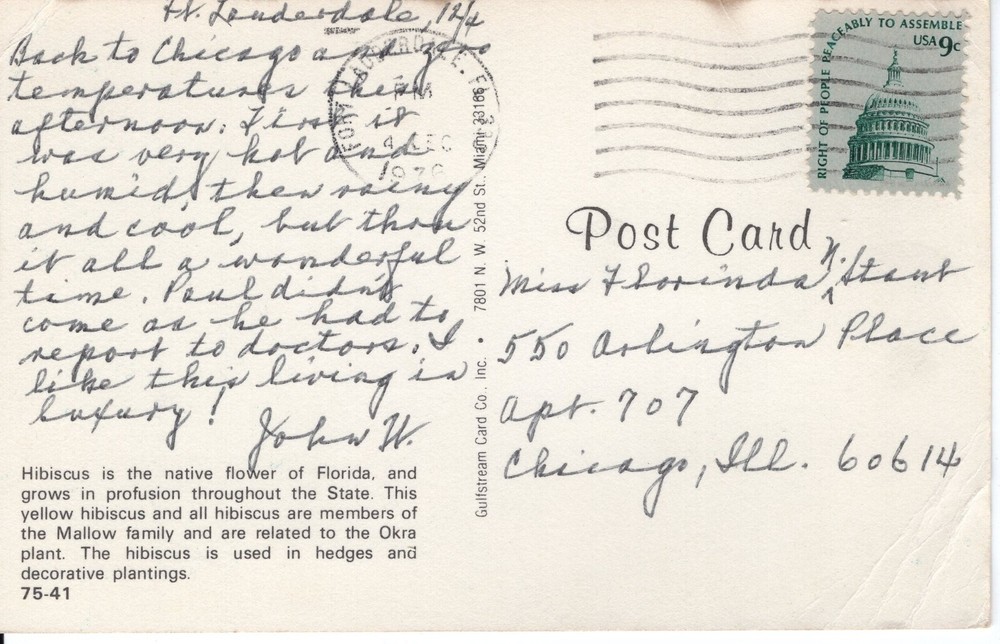 Ft. Lauderdale, 12/4
Back to Chicago and zero
temperatures this
afternoon. First it
was very hot and
humid, then rainy
and cool, but thru
it all a wonderful
time. Paul didn't
come as he had to
report to doctors. I
like this living in
luxury!
John W.
Hibiscus is the native flower of Florida, and
grows in profusion throughout the State. This
yellow hibiscus and all hibiscus are members of
the Mallow family and are related to the Okra
plant. The hibiscus is used in hedges and
decorative plantings.
75-41
Gulfstream Card Co., Inc. • 7801 N. W. 52nd St., Miami 33166
FORT LAUDERDALE, FL
PM
4 DEC
RIGHT OF PEOPLE PEACEABLY TO ASSEMBLE
USA 9c
Post Card
Miss Florinda N. Stant
550 Arlington Place
Apt. 707
Chicago, Ill. 60614